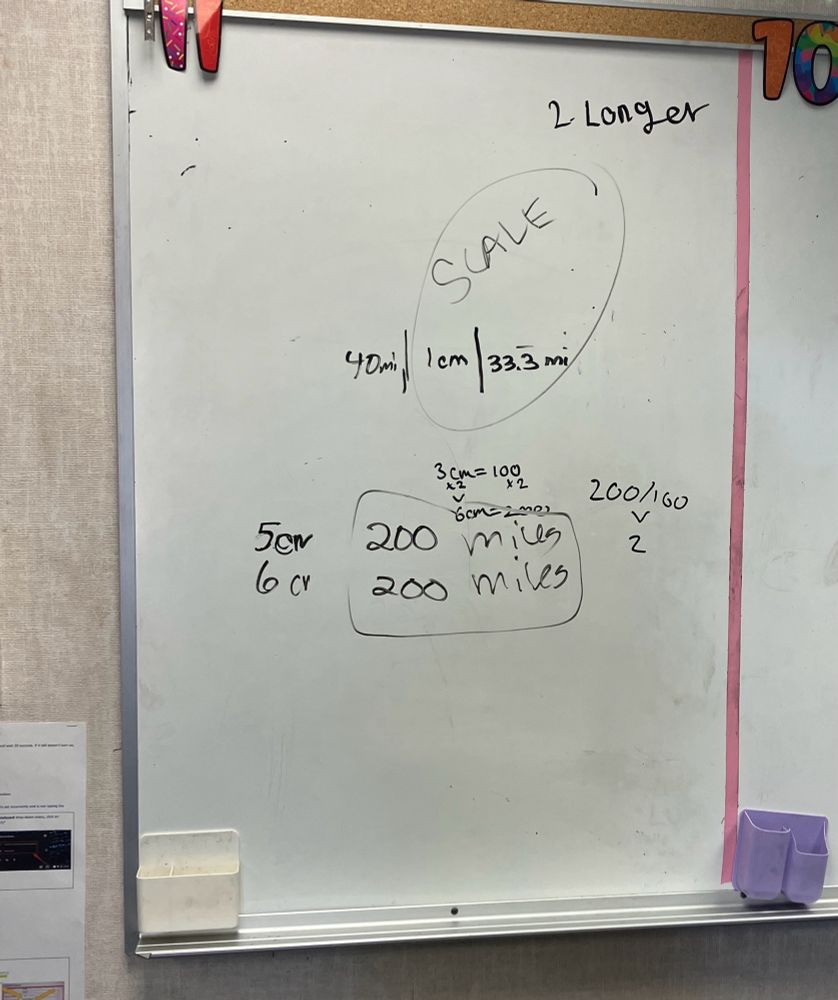 11
10
2 Longer
SCALE
40mi | 1cm | 33.3̅ mi
3cm = 100
x2 x2
6cm=
200/100
2
5cm 200 miles
6 cm 200 miles